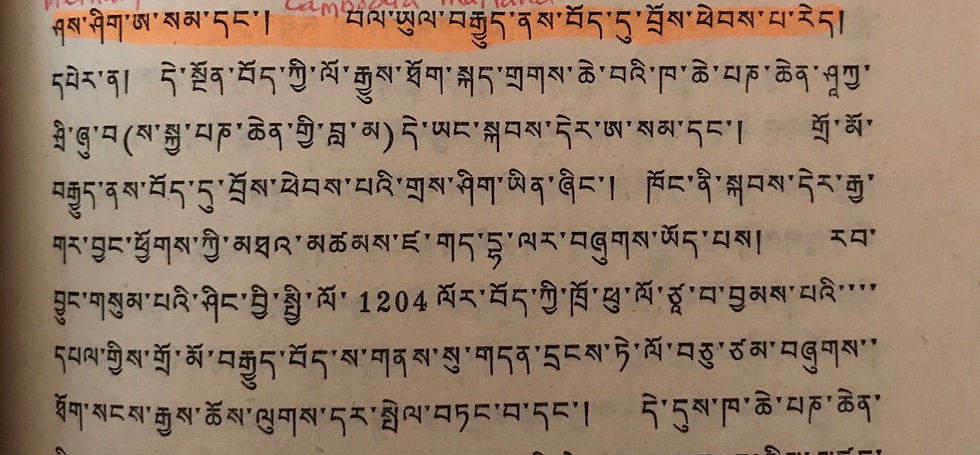 Cambodia Thailand
ཤས་ཤིག་ཨ་སམ་དང་། བལ་ཡུལ་བརྒྱུད་ནས་བོད་དུ་བྲོས་ཕེབས་པ་རེད།
དཔེར་ན། དེ་སྔོན་བོད་ཀྱི་ལོ་རྒྱུས་ཐོག་སྐད་གྲགས་ཆེ་བའི་ཁ་ཆེ་པཎ་ཆེན་ཤཱཀྱ་
ཤྲི་ཞུ་བ(ས་སྐྱ་པཎ་ཆེན་གྱི་བླ་མ) དེ་ཡང་སྐབས་དེར་ཨ་སམ་དང་། གྲོ་མོ་
བརྒྱུད་ནས་བོད་དུ་བྲོས་ཕེབས་པའི་གྲས་ཤིག་ཡིན་ཞིང་། ཁོང་ནི་སྐབས་དེར་རྒྱ་
གར་བྱང་ཕྱོགས་ཀྱི་མཐའ་མཚམས་ཇ་གད་དྷ་ལར་བཞུགས་ཡོད་པས། རབ་
བྱུང་གསུམ་པའི་ཤིང་བྱི་སྤྱི་ལོ་ 1204 ལོར་བོད་ཀྱི་ཁྲོ་ཕུ་ལོ་ཙཱ་བ་བྱམས་པའི་་་་
དཔལ་གྱིས་གྲོ་མོ་བརྒྱུད་བོད་ས་གནས་སུ་གདན་དྲངས་ཏེ་ལོ་བཅུ་ཙམ་བཞུགས་་
ཐོག་སངས་རྒྱས་ཆོས་ལུགས་དར་སྤེལ་བཏང་བ་དང་། དེ་དུས་ཁ་ཆེ་པཎ་ཆེན་